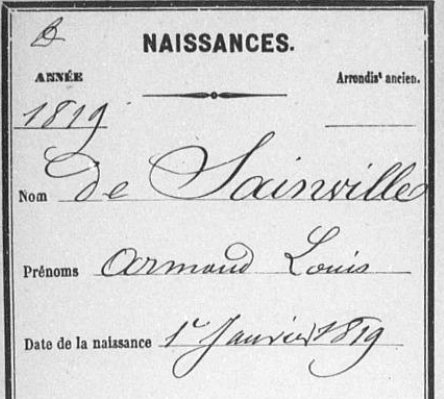 D
NAISSANCES.
ANNÉE
Arrondist ancien.
1819
Nom de Sainville
Prénoms Armand Louis
Date de la naissance 1r Janvier 1819